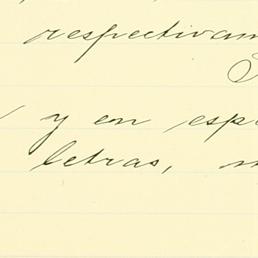 respectivam
y en esp
letras,